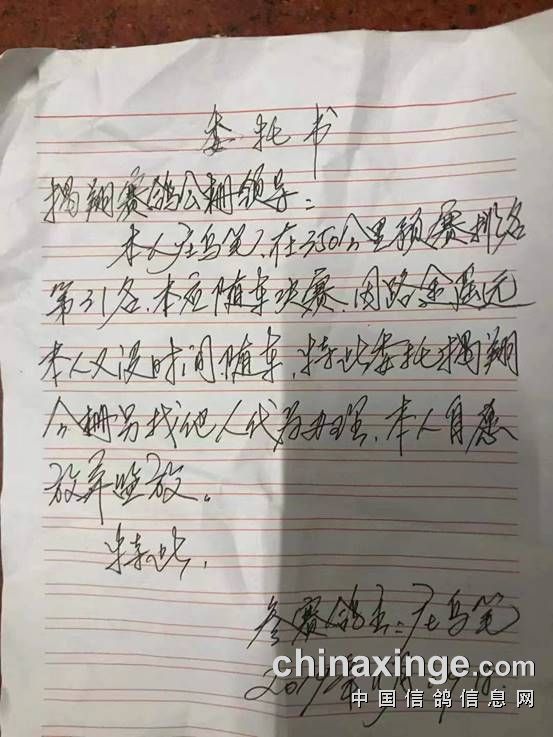 委托书
揭翔赛鸽公棚领导：
本人庄乌笔，在350公里预赛排名
第31名，本应随车决赛，因路途遥远
本人又没时间随车，特此委托揭翔
公棚另找他人代为办理，本人自愿
放弃监放。
特此，
参赛鸽主：庄乌笔
2017年11月
chinaxinge.com
中国信鸽信息网